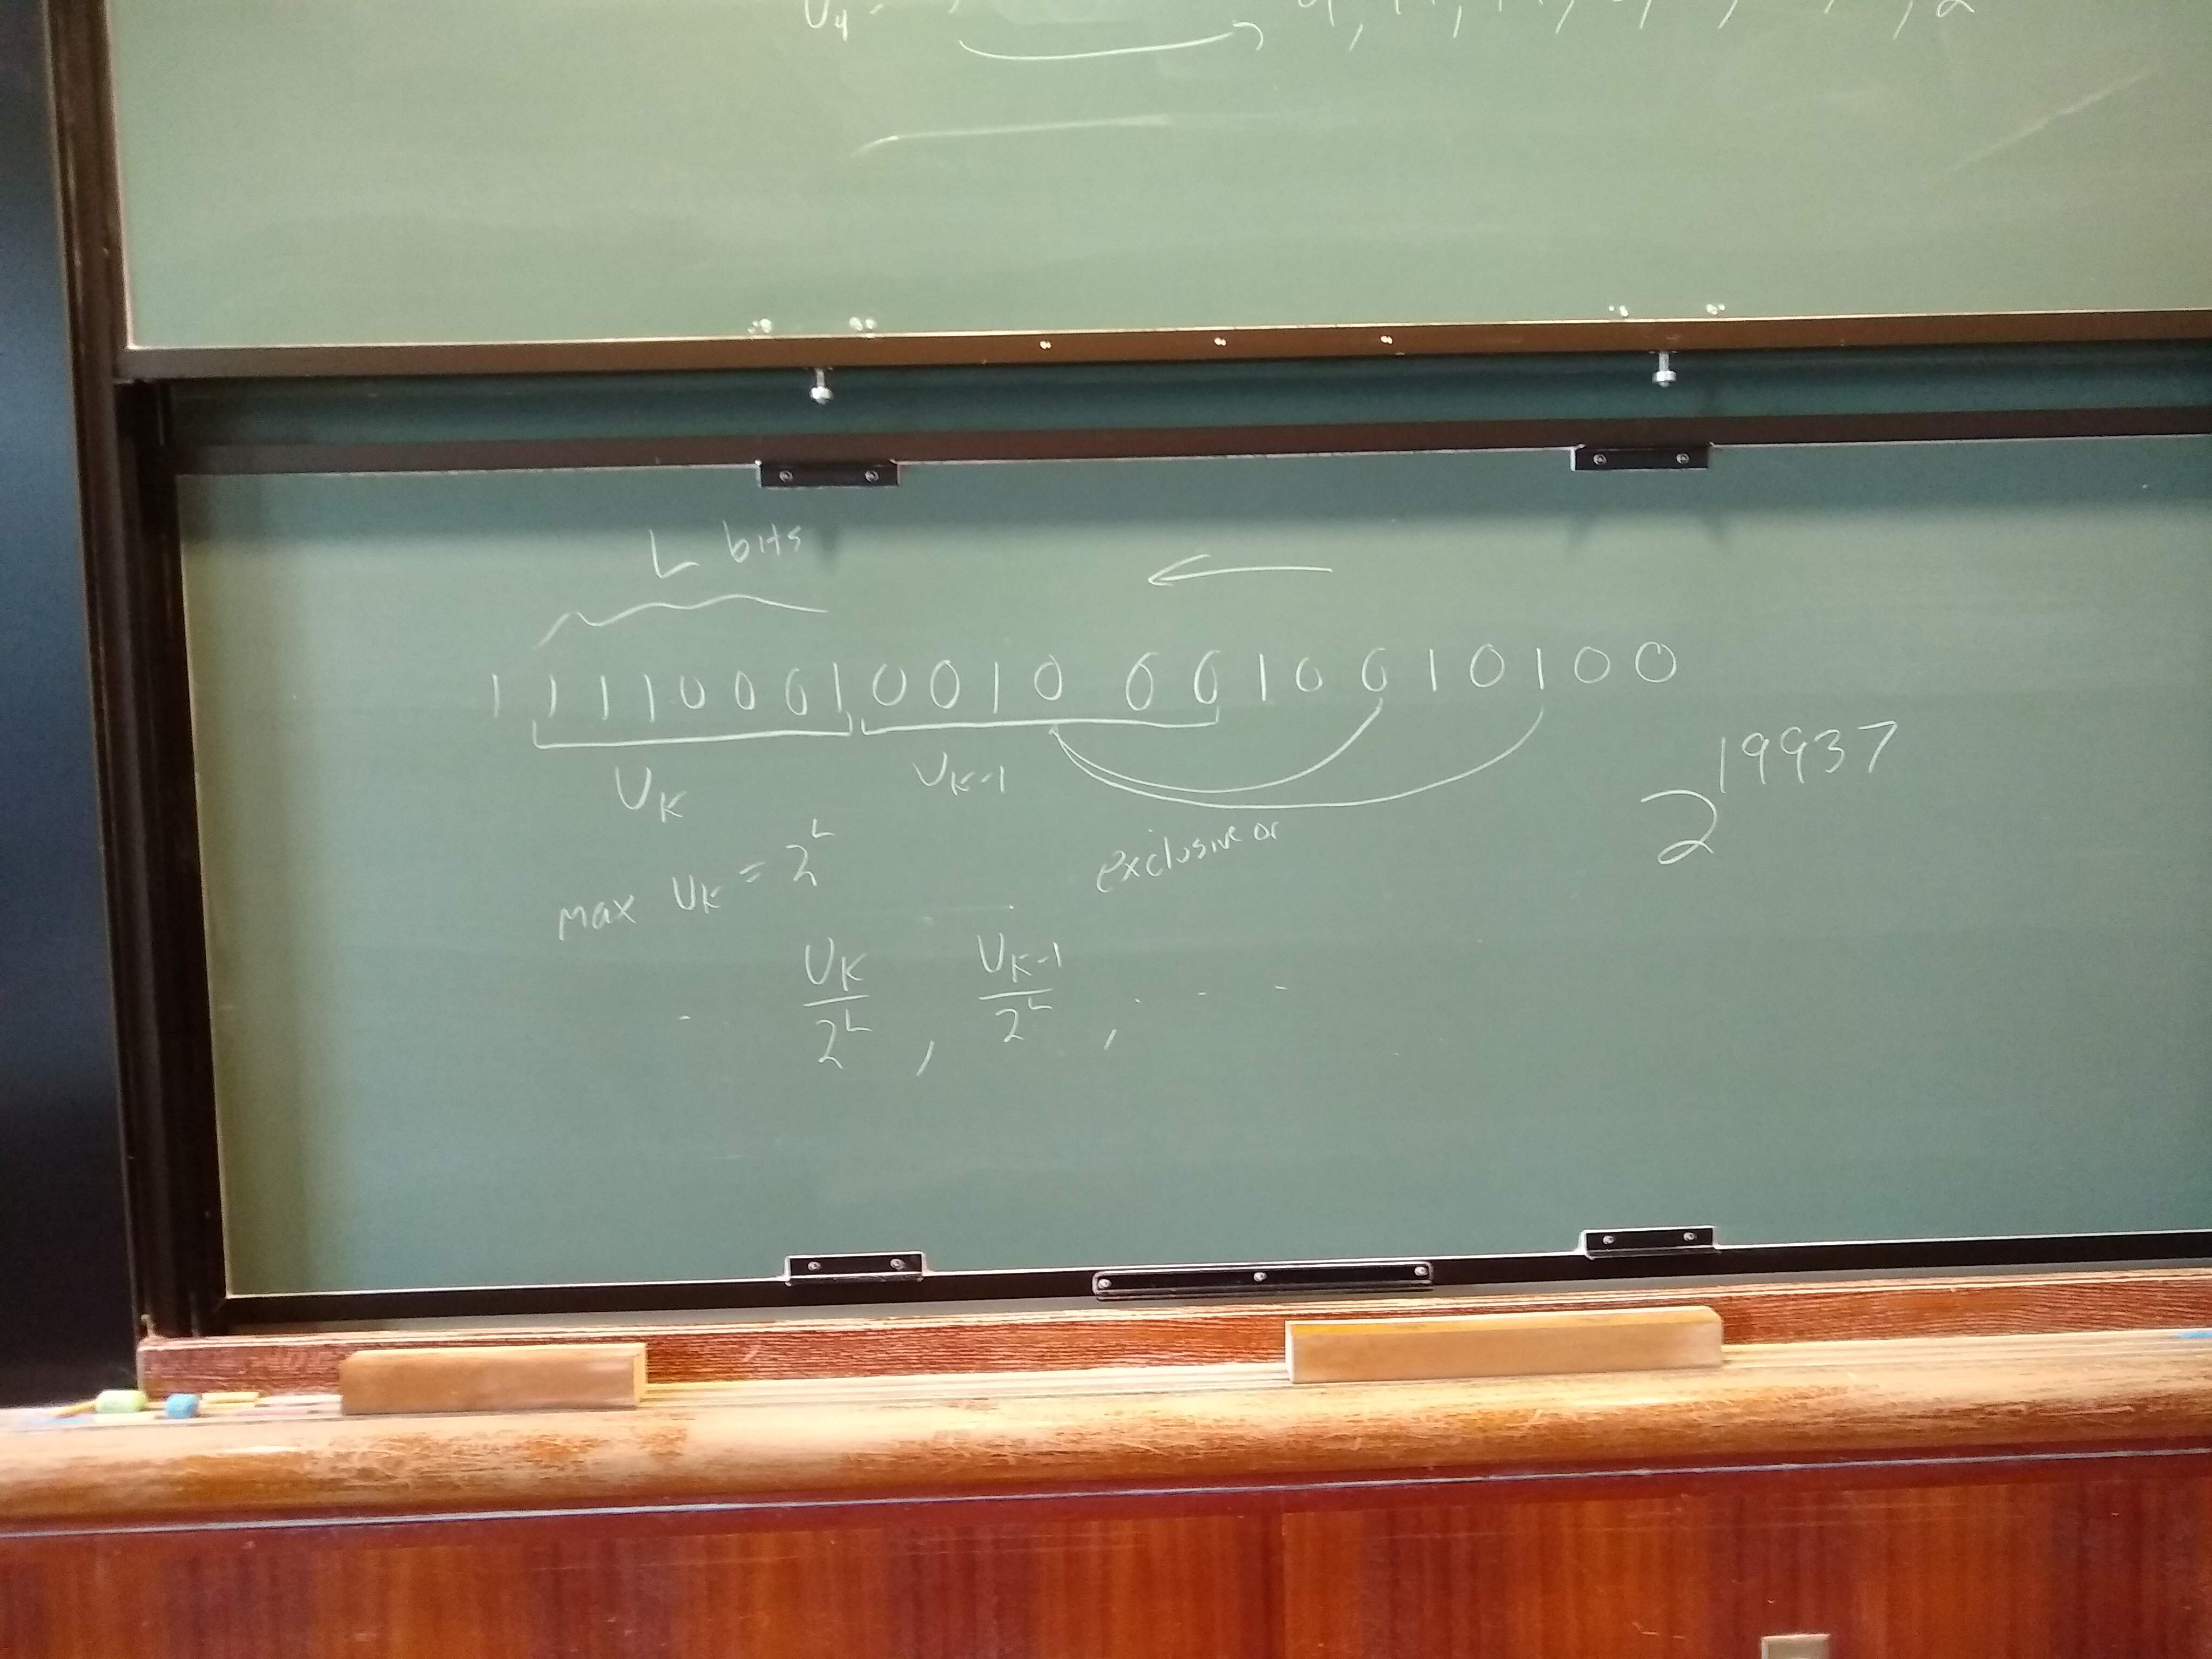 U₄
L bits
1 1 1 1 0 0 0 1 0 0 1 0 0 0 1 0 0 1 0 1 0 0
U_K U_K-1
2^19937
exclusive or
max U_K = 2^L
U_K/2^L , U_K-1/2^L , . - -